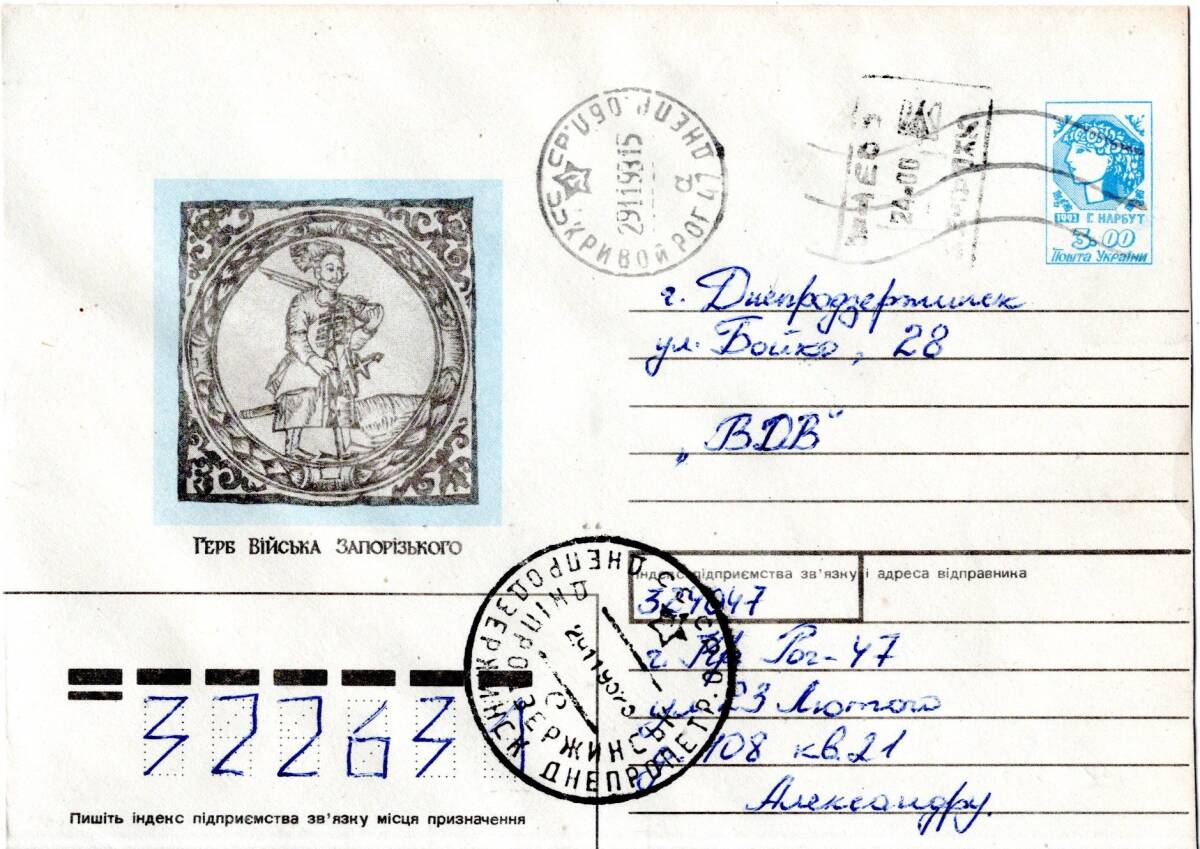 КРИВОЙ РОГ
24.00
Г. НАРБУТ
3.00
Пошта України
г. Днепродзержинск
ул. Бойко, 28
„ВДВ“
Герб Війська Запорізького
Індекс підприємства зв'язку і адреса відправника
324047
г. Кр Рог-47
ул. 23 Лютого
108 кв. 21
Александру.
ДНЕПРОДЗЕРЖИНСК ДНЕПРОПЕТР.
ДНІПРОДЗЕРЖИНСЬК
322631
Пишіть індекс підприємства зв'язку місця призначення